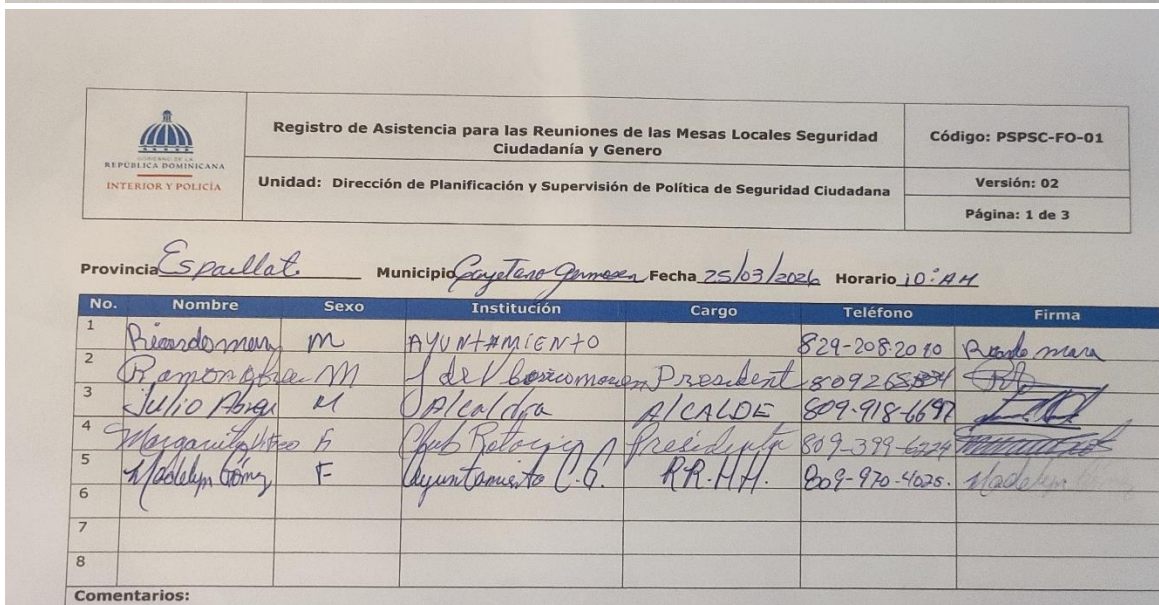 GOBIERNO DE LA
REPÚBLICA DOMINICANA
INTERIOR Y POLICÍA
Registro de Asistencia para las Reuniones de las Mesas Locales Seguridad
Ciudadanía y Genero
Código: PSPSC-FO-01
Unidad: Dirección de Planificación y Supervisión de Política de Seguridad Ciudadana
Versión: 02
Página: 1 de 3
Provincia Espaillat Municipio Cayetano Germosen Fecha 25/03/2026 Horario 10:AM
No. Nombre Sexo Institución Cargo Teléfono Firma
1 Ricardo M AYUNTAMIENTO 829-208-2010 Ricardo
2 Ramon M J del Presidente 809265
3 Julio M Alcaldia ALCALDE 809-918-6697
4 Margarita F Club Presidenta 809-399-
5 Madelyn Gómez F Ayuntamiento C.G. RR.HH. 809-970-4025. Madelyn
6
7
8
Comentarios: